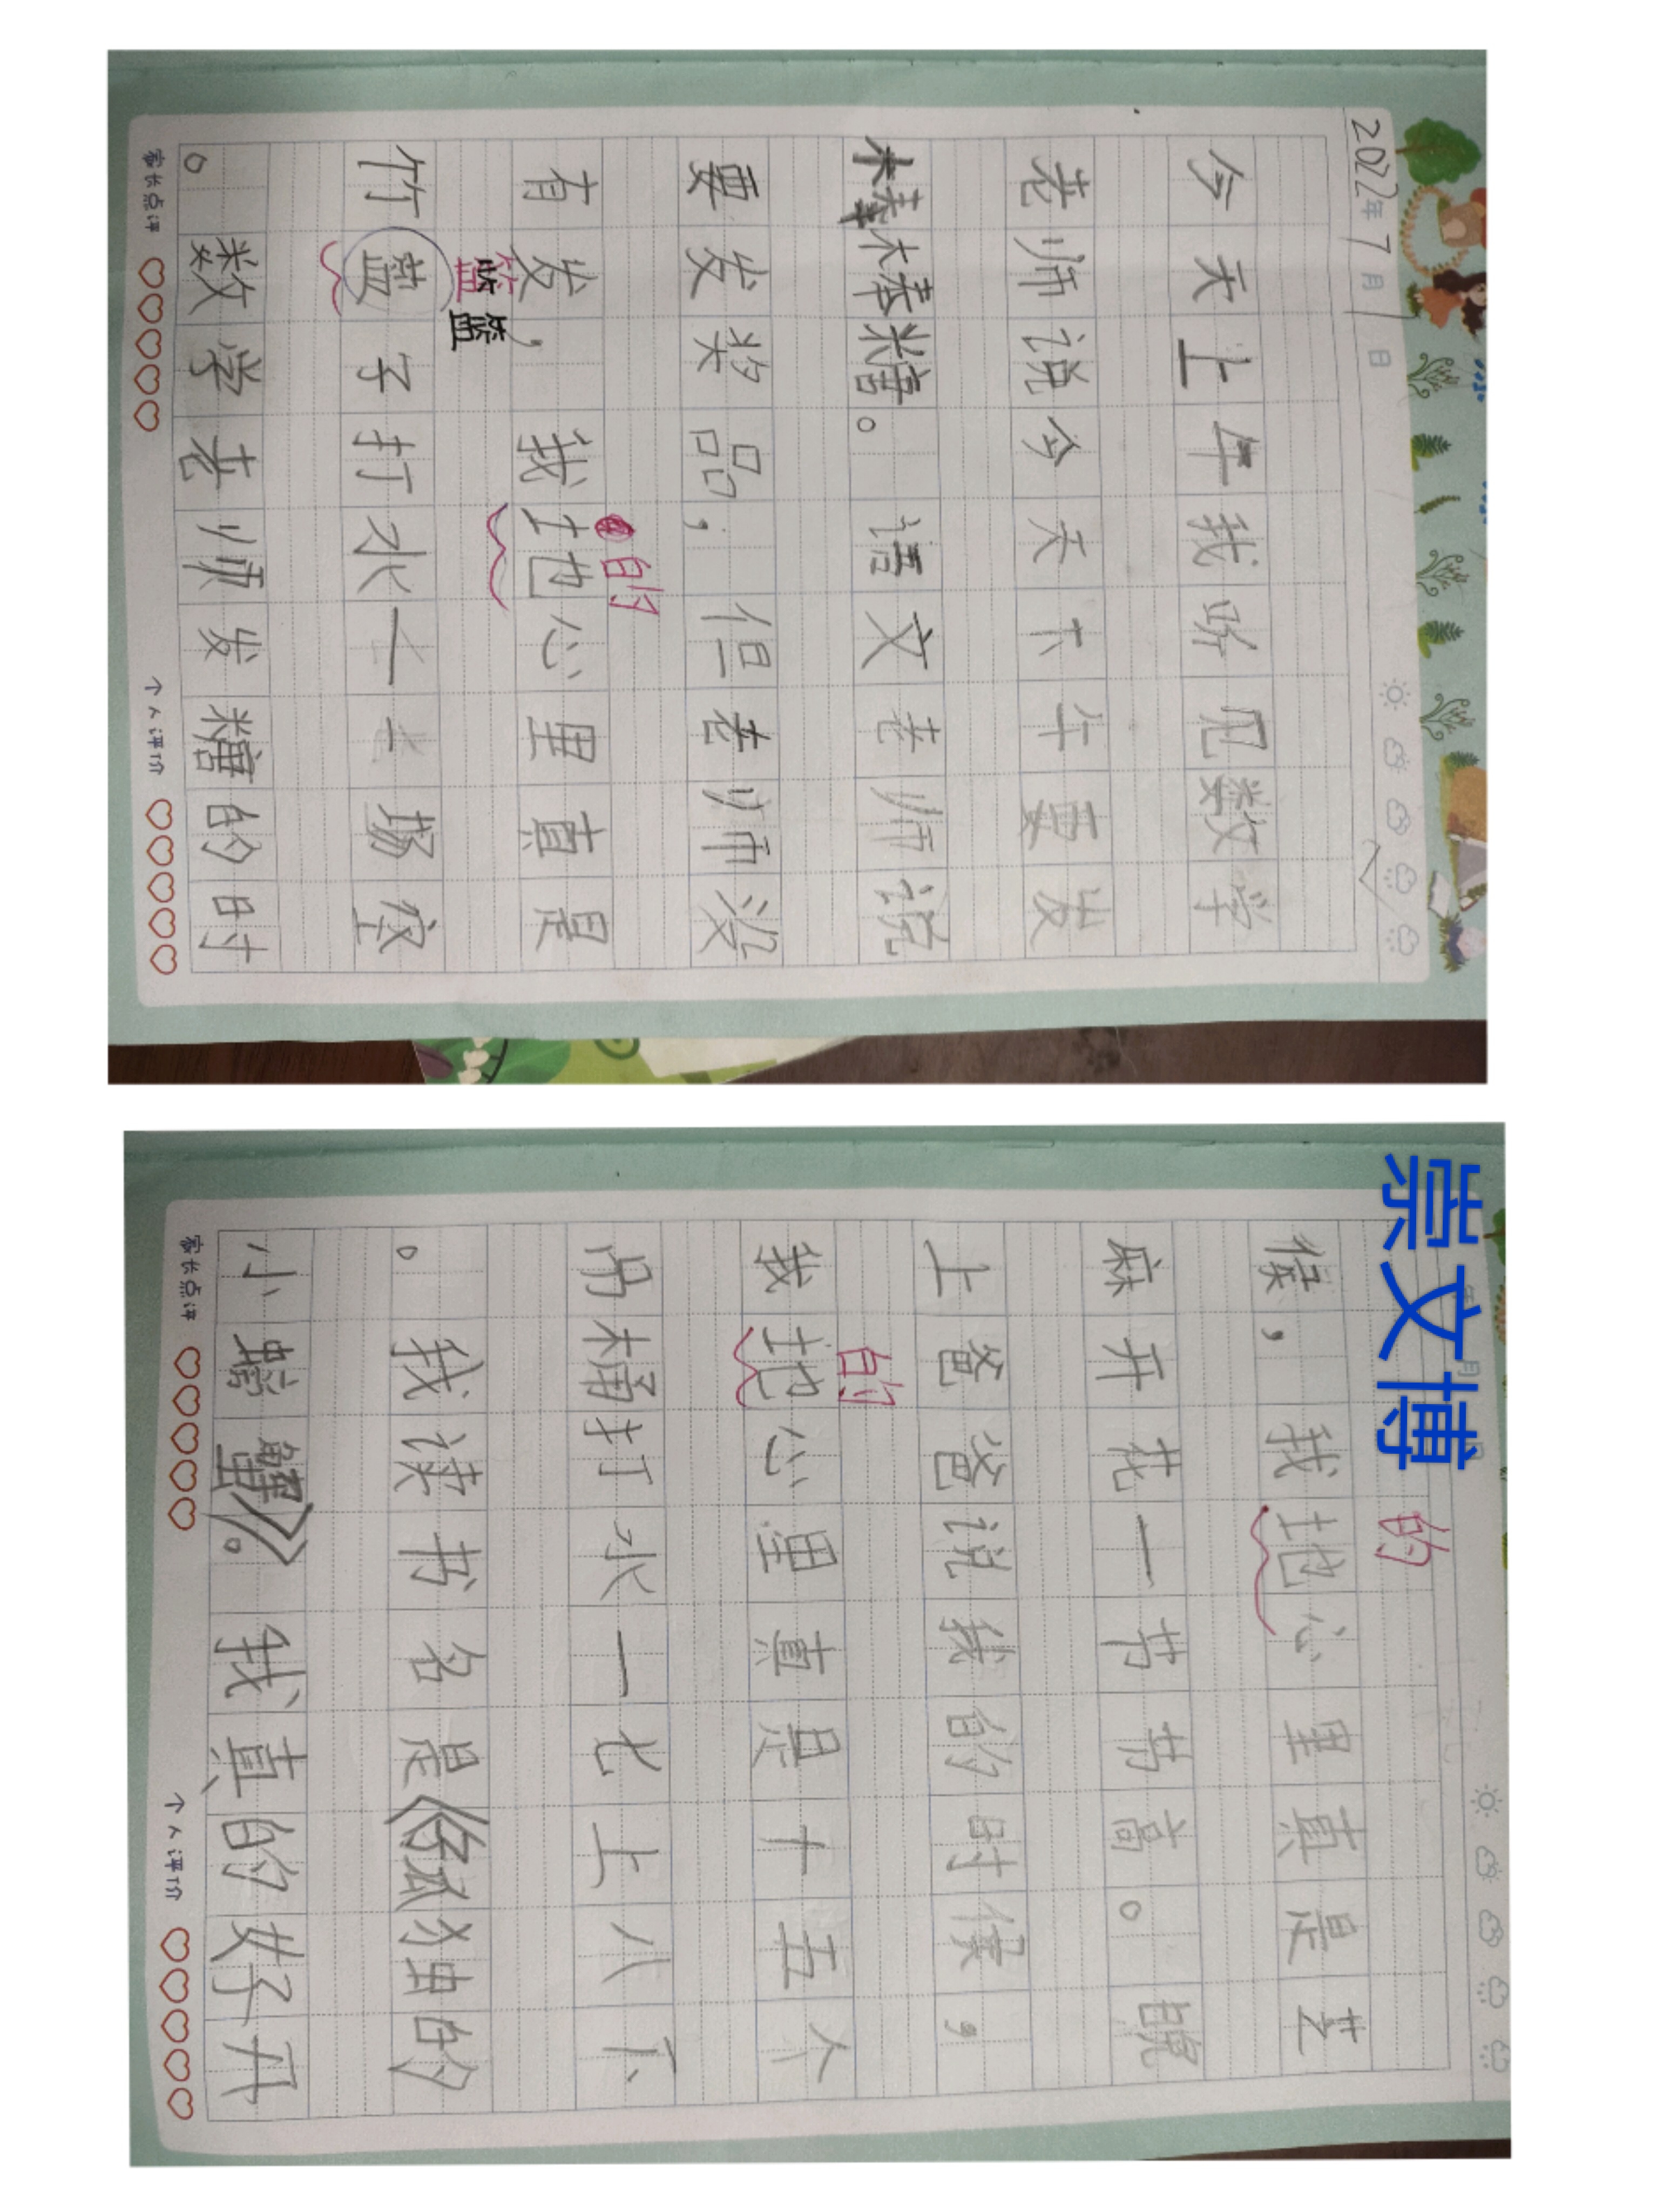 2022年7月1日
今天上午我听见数学
老师说今天下午要发
棒棒糖。语文老师说
要发奖品，但老师没
的
有发，我地心里真是
篮 篮
竹蓝子打水一场空
。数学老师发糖的时
家长点评 个人评价
崇文博
的
候，我地心里真是芝
麻开花一节节高。晚
上爸爸说我的时候，
的
我地心里真是十五个
吊桶打水一七上八下
。我读书名是《孤独的
小螃蟹》。我真的好开
家长点评 个人评价